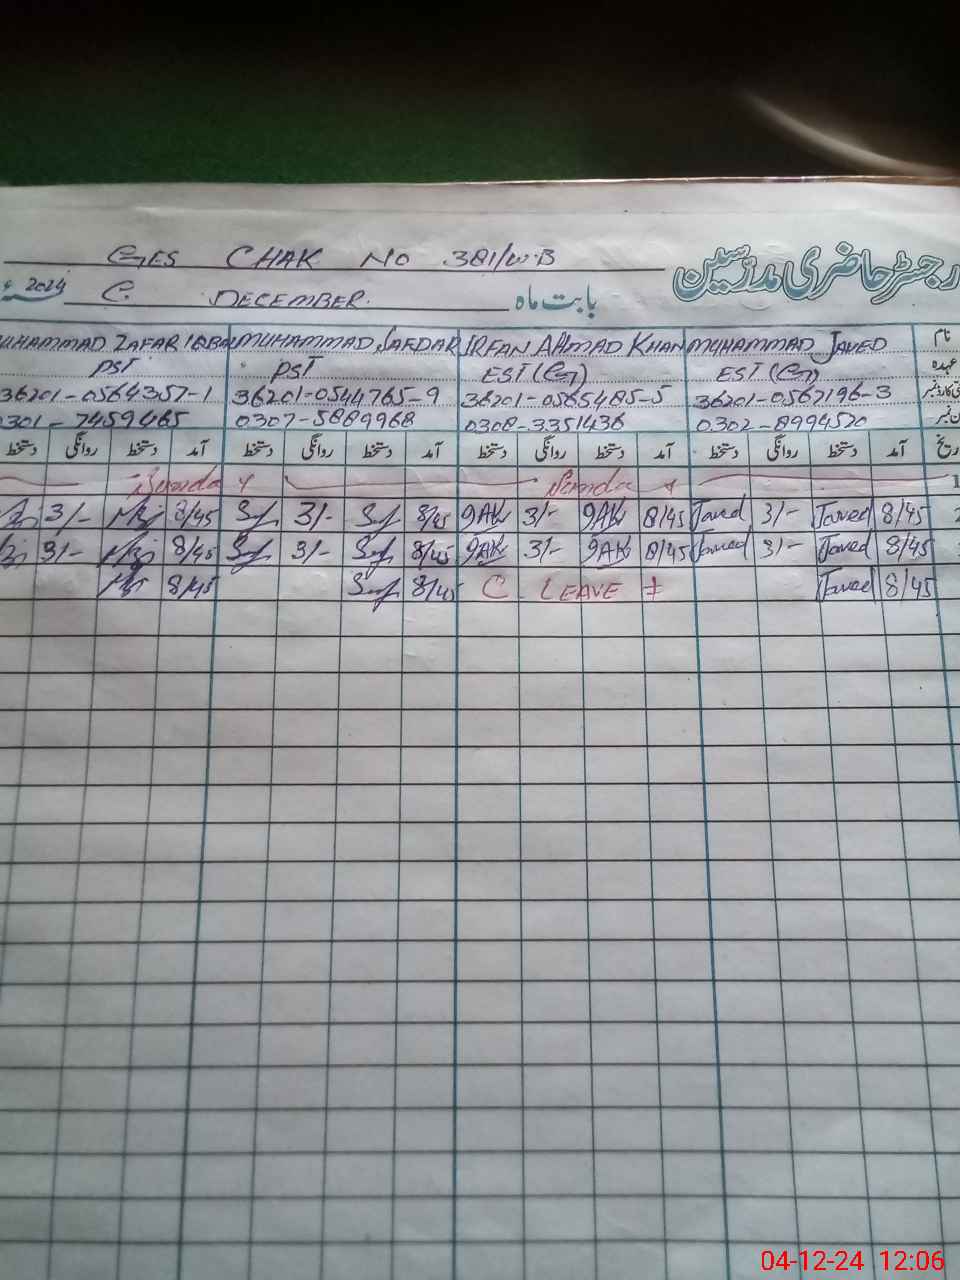 GES CHAK NO 381/W.B رجسٹر حاضری مدرسین
2024 C. DECEMBER. بابت ماہ
MUHAMMAD ZAFAR IQBAL MUHAMMAD SAFDAR IRFAN AHMAD KHAN MUHAMMAD JAVED نام
PST PST EST (G) EST (G) عہدہ
36201-0564357-1 36201-0544765-9 36201-0565485-5 36201-0567196-3
0301-7459465 0307-5889968 0308-3351436 0302-8994520
دستخط روانگی دستخط آمد دستخط روانگی دستخط آمد دستخط روانگی دستخط آمد دستخط روانگی دستخط آمد تاریخ
Sunday Sunday 1
3/- 8/45 3/- 8/45 9AK 3/- 9AK 8/45 Javed 3/- Javed 8/45
3/- 8/45 3/- 8/45 9AK 3/- 9AK 8/45 Javed 3/- Javed 8/45
8/45 8/45 C. LEAVE Javed 8/45
04-12-24 12:06